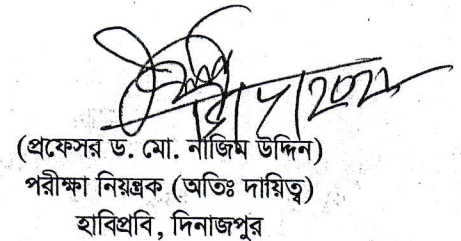 (প্রফেসর ড. মো. নাজিম উদ্দিন)
পরীক্ষা নিয়ন্ত্রক (অতিঃ দায়িত্ব)
হাবিপ্রবি, দিনাজপুর